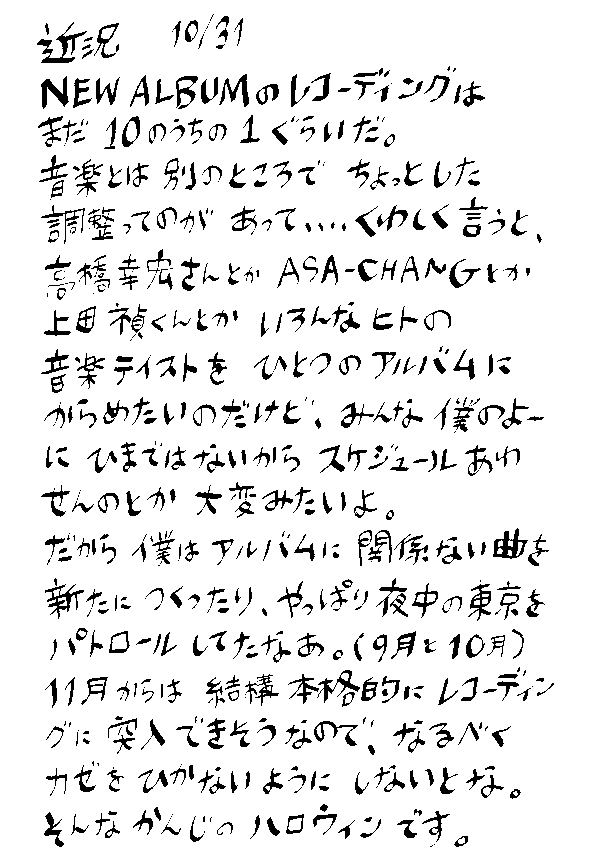 近況 10/31
NEW ALBUMのレコーディングは
まだ 10のうちの1ぐらいだ。
音楽とは 別のところで ちょっとした
調整ってのが あって、、、、くわしく言うと、
高橋幸宏さんとか ASA-CHANGとか
上田禎くんとか いろんなヒトの
音楽テイストを ひとつのアルバムに
からめたいのだけど、みんな僕のよー
に ひまではないから スケジュールあわ
せんのとか 大変みたいよ。
だから 僕は アルバムに 関係ない曲を
新たに つくったり、やっぱり夜中の東京を
パトロール してたなあ。(9月と10月)
11月からは 結構 本格的に レコーディン
グに 突入できそうなので、なるべく
カゼを ひかないように しないとな。
そんな かんじの ハロウィン です。